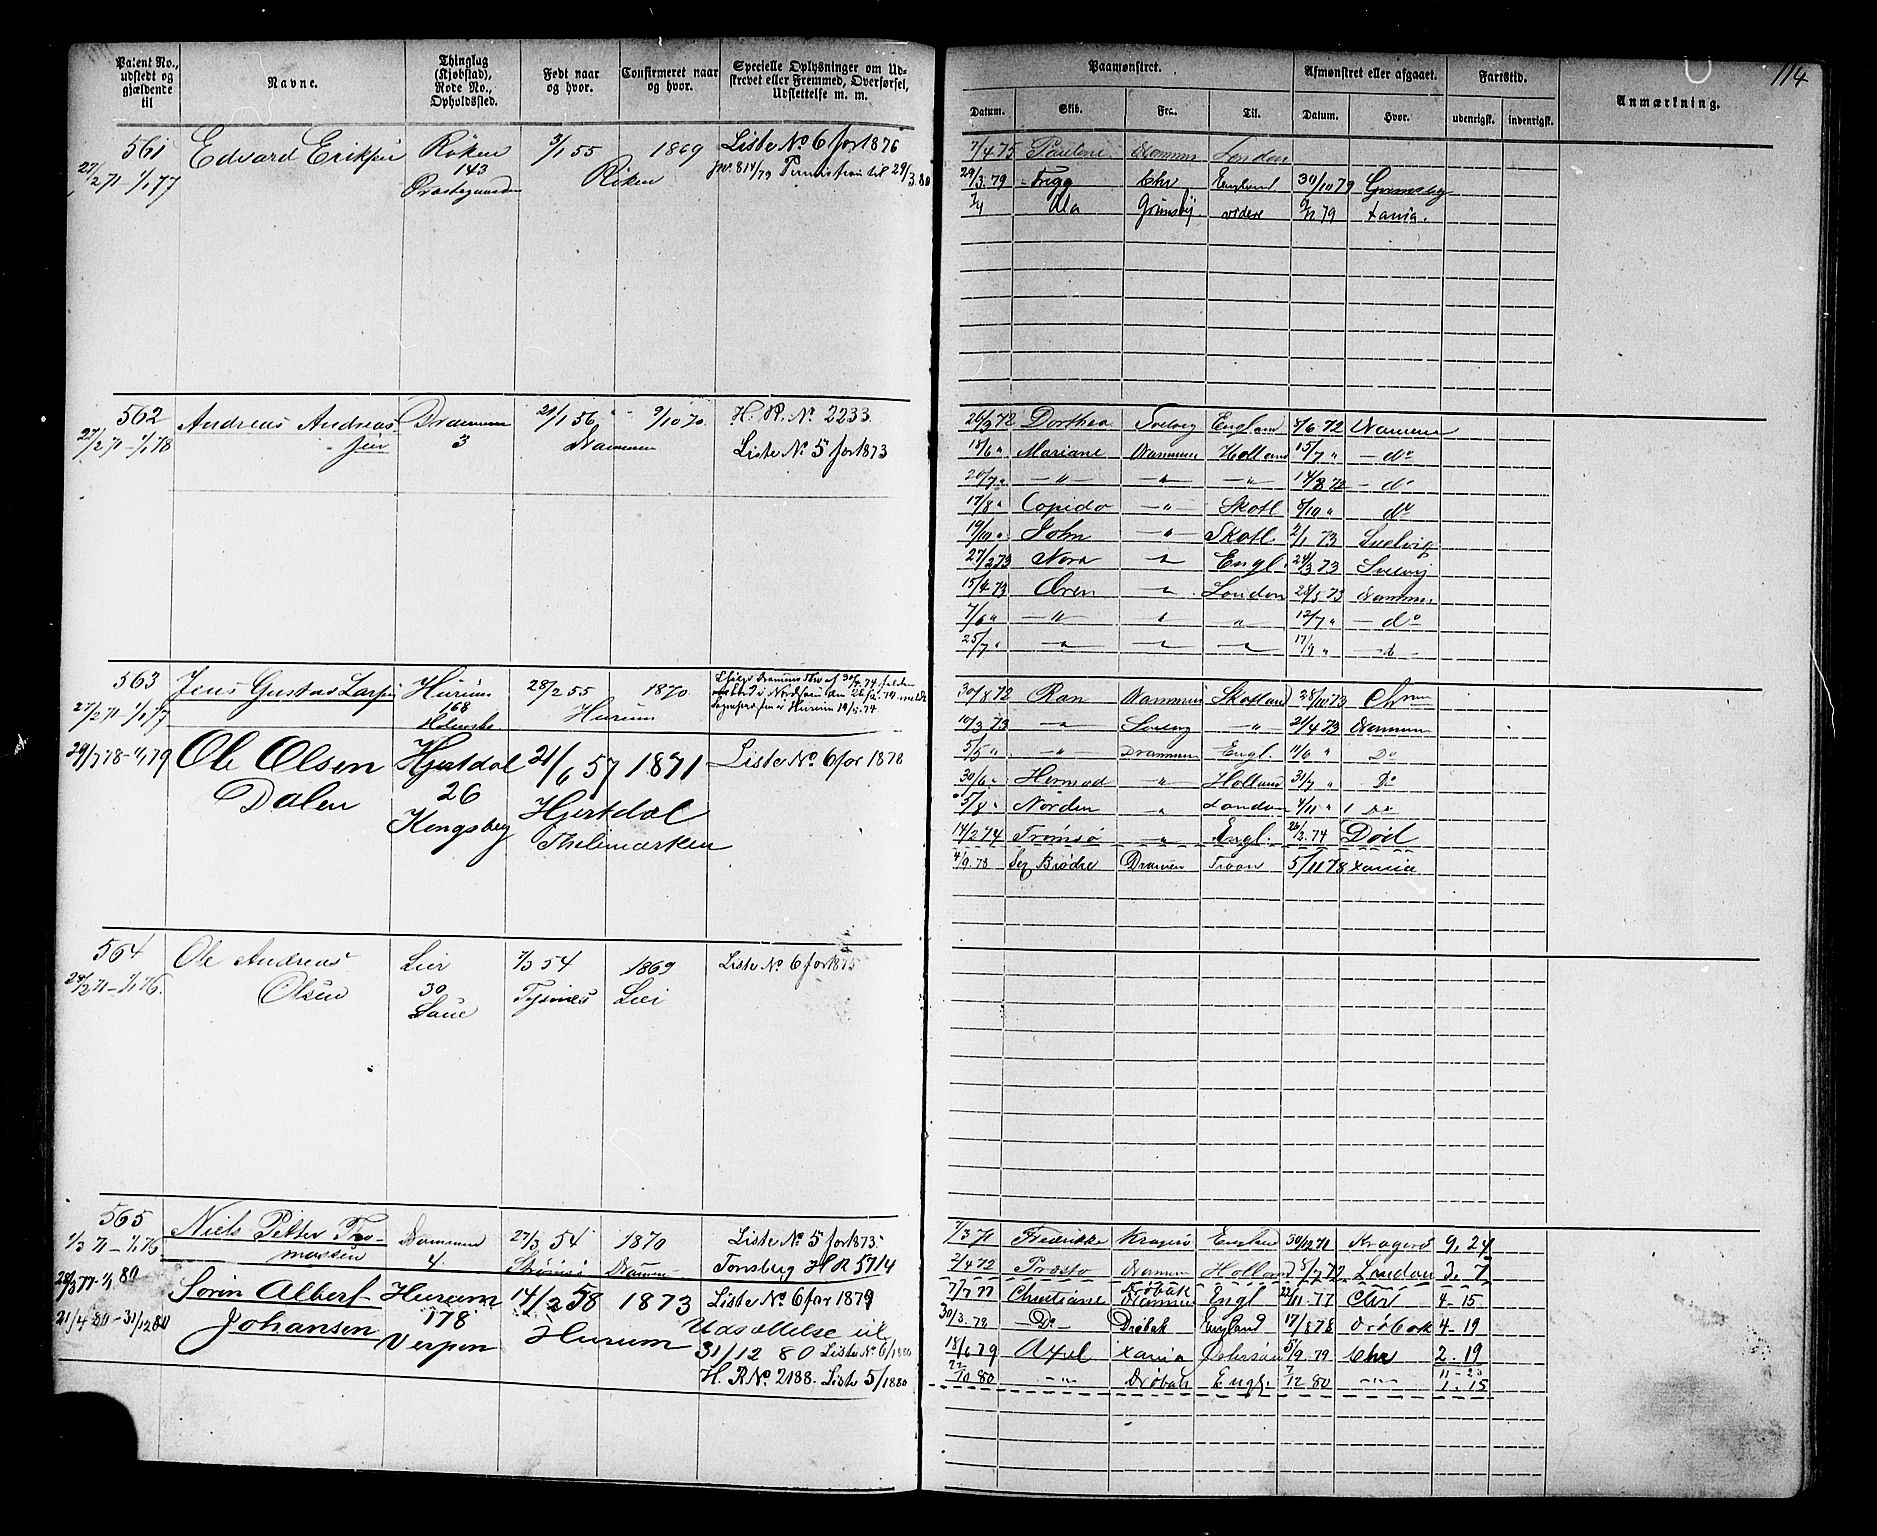 114
Patent No., udstedt og gjældende til
Navne.
Thinglag (Kjøbstad), Rode No., Opholdssted.
Født naar og hvor.
Confirmeret naar og hvor.
Specielle Oplysninger om Udskrevet eller Fremmed, Overførsel, Udslettelse m. m.
Paamønstret.
Datum. Skib. Fra. Til.
Afmønstret eller afgaaet.
Datum. Hvor.
Fartstid.
udenrigsk. indenrigsk.
Anmærkning.
561 Edvard Eriksen Røken 3/1 55 1869 Liste No 6 for 1876
27/2 71 - 1/1 77 143 Røken
7/4 75 Pauline Drammen London
29/3 79 Frigg Chr England 30/10 79 Grimsby
Ula Grimsby videre 79 Xania.
562 Andreas Andreassen Drammen 3 21/1 56 Drammen 9/10 70 H. R. No 2233.
27/2 71 - 1/1 78 Liste No 5 for 1873
26/3 72 Dorthea Svelvig England 8/6 72 Drammen
18/6 " Mariane Drammen Holland 15/7 " - do
20/7 " - " - - " - - " - 14/8 72 - do
17/8 " Cupido - " - Skotl 8/10 " do
19/10 " John - " - Skotl 2/1 73 Svelvig
27/2 73 Nora " Engl. 24/3 73 Svelvig
15/4 73 Ören " London 28/5 73 Drammen
7/6 " - " - " " 12/7 " - do
25/7 " " " " 17/9 " - d -
563 Jens Gustav Larsen Hurum 28/2 55 1870
27/2 71 - 1/1 7 168 Holmsbo Hurum
30/8 72 Ran Drammen Skotland 28/10 73 Chr
10/3 73 - " - Svelvig - " - 21/4 73 Drammen
5/5 " - " - Drammen Engl. 11/6 " Do
30/6 " Hermod - " - Holland 31/7 " Do
5/8 " Norden " London 4/11 " do
14/2 74 Tromsø " Engl. 26/3 74 Død
29/7 78 - 1/1 79 Ole Olsen Hjertdal 21/6 57 1871 Liste No 6 for 1878
Dalen 26 Hjertdal
Kongsberg Thelemarken
4/9 78 Brødre Drammen 5/11 78 Xania
564 Ole Andreas Lier 7/3 54 1869 Liste No 6 for 1875
28/2 71 - 1/1 76. Olsen 30 Tysnes Lier
565 Niels Petter Tho- Drammen 27/3 54 1870 Liste No 5 for 1873.
1/3 71 - 1/1 76 massen 4. Drammen Tønsberg H R 5714
7/3 71 Fredrikke Kragerø England 30/12 71 Kragerø 9. 24
2/4 72 Præsto Drammen Holland 5/7 72 London 3. 7
28/3 77 - 1/1 80 Sørin Albert Hurum 14/2 58 1873 Liste No 6 for 1879
21/4 80 - 31/12 80 Johansen 178 Hurum Udsættelse til
Verpen 31/12 80 Liste No 6/1880
H. R No. 2188. Liste 5/1880
7/7 77 Christiane Drøbak Drammen Engl 22/11 77 Chr 4 - 15
30/3. 78 - Do - Drøbak England 17/8 78 Drøbak 4 - 19
18/6 79 Axel Xania Østersøen 5/9. 79 Chr 2. 19
22/10 80 - " - Drøbak Engl. 7/12 80 - " - 1. 15
11 - 23